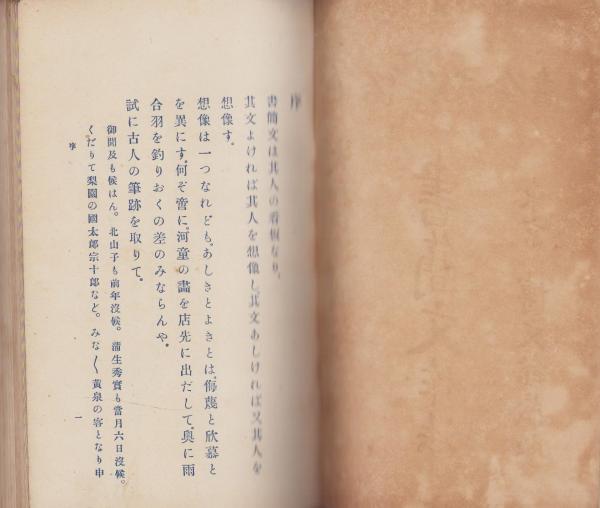 序
書簡文は其人の看板なり。
其文よければ其人を想像し、其文あしければ又其人を
想像す。
想像は一つなれども、あしきとよきとは、侮蔑と欣慕と
を異にす。何ぞ啻に、河童の畵を店先に出だして、奧に雨
合羽を釣りおくの差のみならんや。
試に古人の筆跡を取りて。
御聞及も候はん。北山子も前年沒候。蒲生秀實も當月六日沒候。
くだりて梨園の國太郎宗十郎など。みな〳〵黄泉の客となり申
序
一